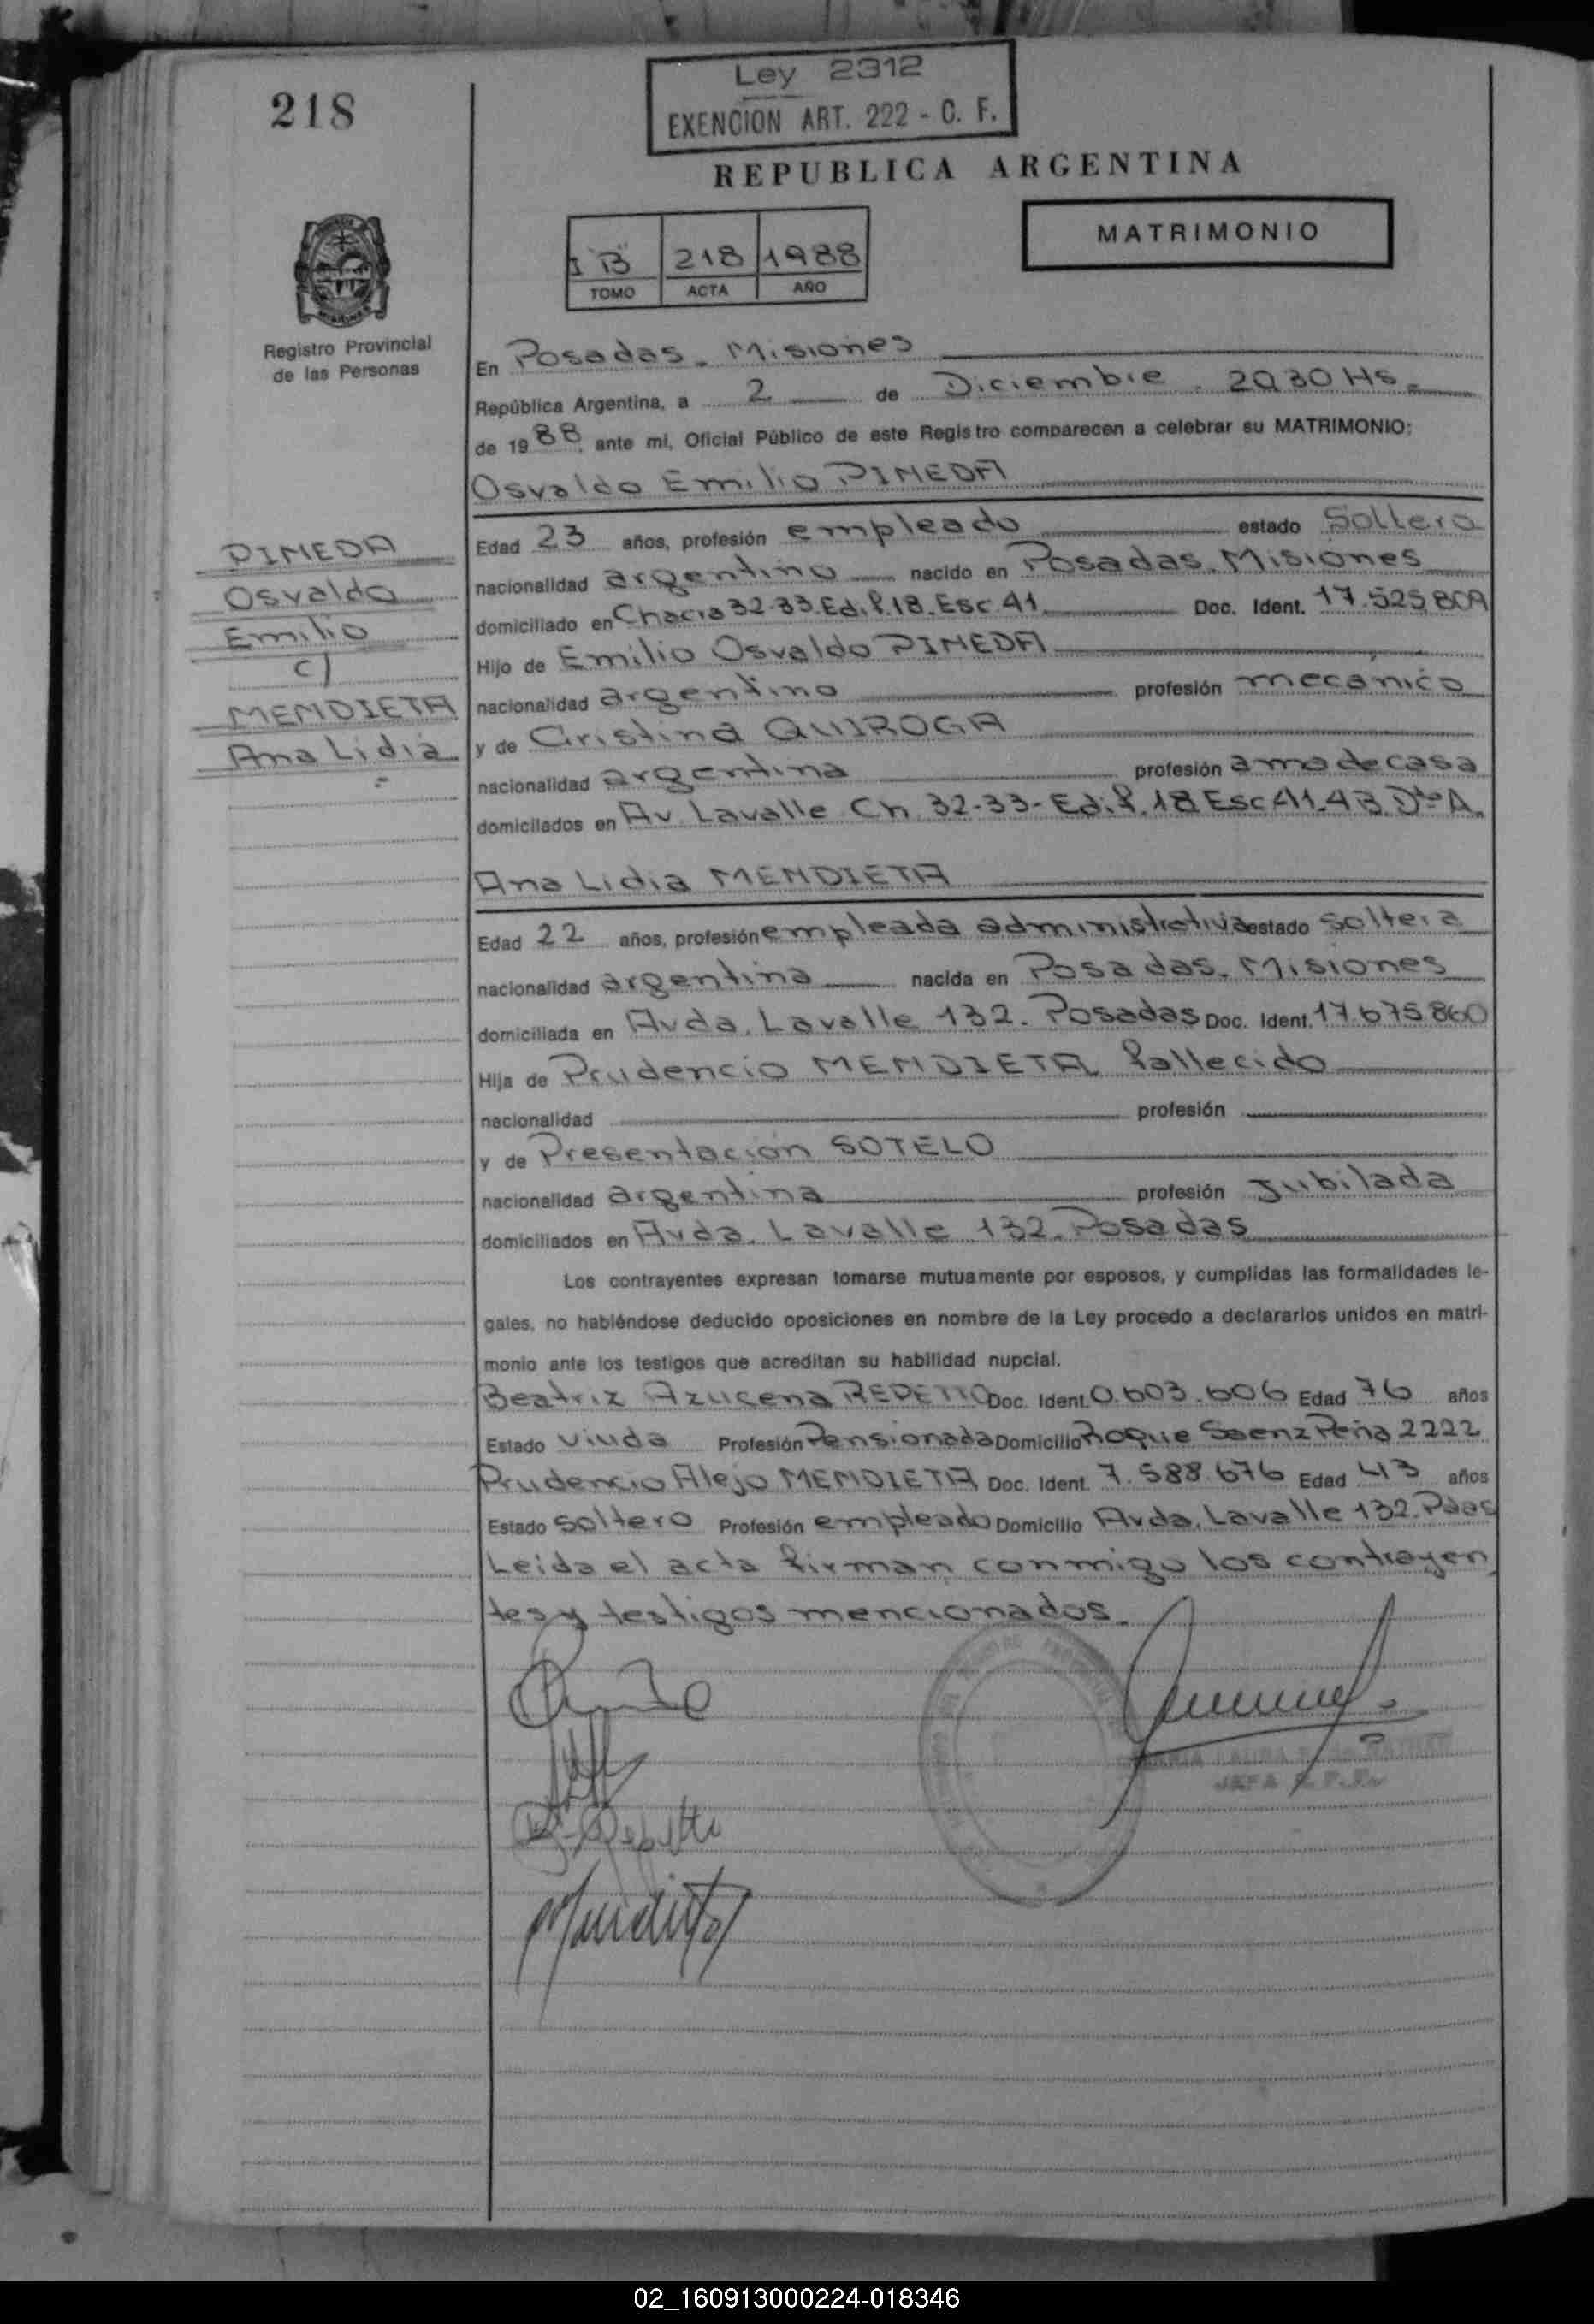 218
Ley 2312
EXENCION ART. 222 - C. F.
REPUBLICA ARGENTINA
MATRIMONIO
I "B" 218 1988
TOMO ACTA AÑO
Registro Provincial
de las Personas
En Posadas - Misiones
República Argentina, a 2 de Diciembre . 20,30 Hs.
de 1988, ante mí, Oficial Público de este Registro comparecen a celebrar su MATRIMONIO:
Osvaldo Emilio PINEDA
PINEDA
Osvaldo
Emilio
c/
MENDIETA
Ana Lidia
Edad 23 años, profesión empleado estado Soltero
nacionalidad argentino nacido en Posadas. Misiones
domiciliado en Chacra 32-33.Edif.18.Esc.41 Doc. Ident. 17.525.809
Hijo de Emilio Osvaldo PINEDA
nacionalidad argentino profesión mecánico
y de Cristina QUIROGA
nacionalidad argentina profesión ama de casa
domiciliados en Av. Lavalle Ch. 32-33-Edif.18 Esc 41.4B.Dto A.
Ana Lidia MENDIETA
Edad 22 años, profesión empleada administrativa estado soltera
nacionalidad argentina nacida en Posadas. Misiones
domiciliada en Avda. Lavalle 132. Posadas Doc. Ident. 17.675.860
Hija de Prudencio MENDIETA fallecido
nacionalidad profesión
y de Presentación SOTELO
nacionalidad argentina profesión Jubilada
domiciliados en Avda. Lavalle 132. Posadas
Los contrayentes expresan tomarse mutuamente por esposos, y cumplidas las formalidades le-
gales, no habiéndose deducido oposiciones en nombre de la Ley procedo a declararlos unidos en matri-
monio ante los testigos que acreditan su habilidad nupcial.
Beatriz Azucena REPETTO Doc. Ident. 0.603.606 Edad 76 años
Estado viuda Profesión Pensionada Domicilio Roque Saenz Peña 2222
Prudencio Alejo MENDIETA Doc. Ident. 7.588.676 Edad 43 años
Estado soltero Profesión empleado Domicilio Avda. Lavalle 132. Pdas
Leida el acta firman conmigo los contrayen
tes y testigos mencionados.
JEFA R.P.P.
Mendieta
02_160913000224-018346